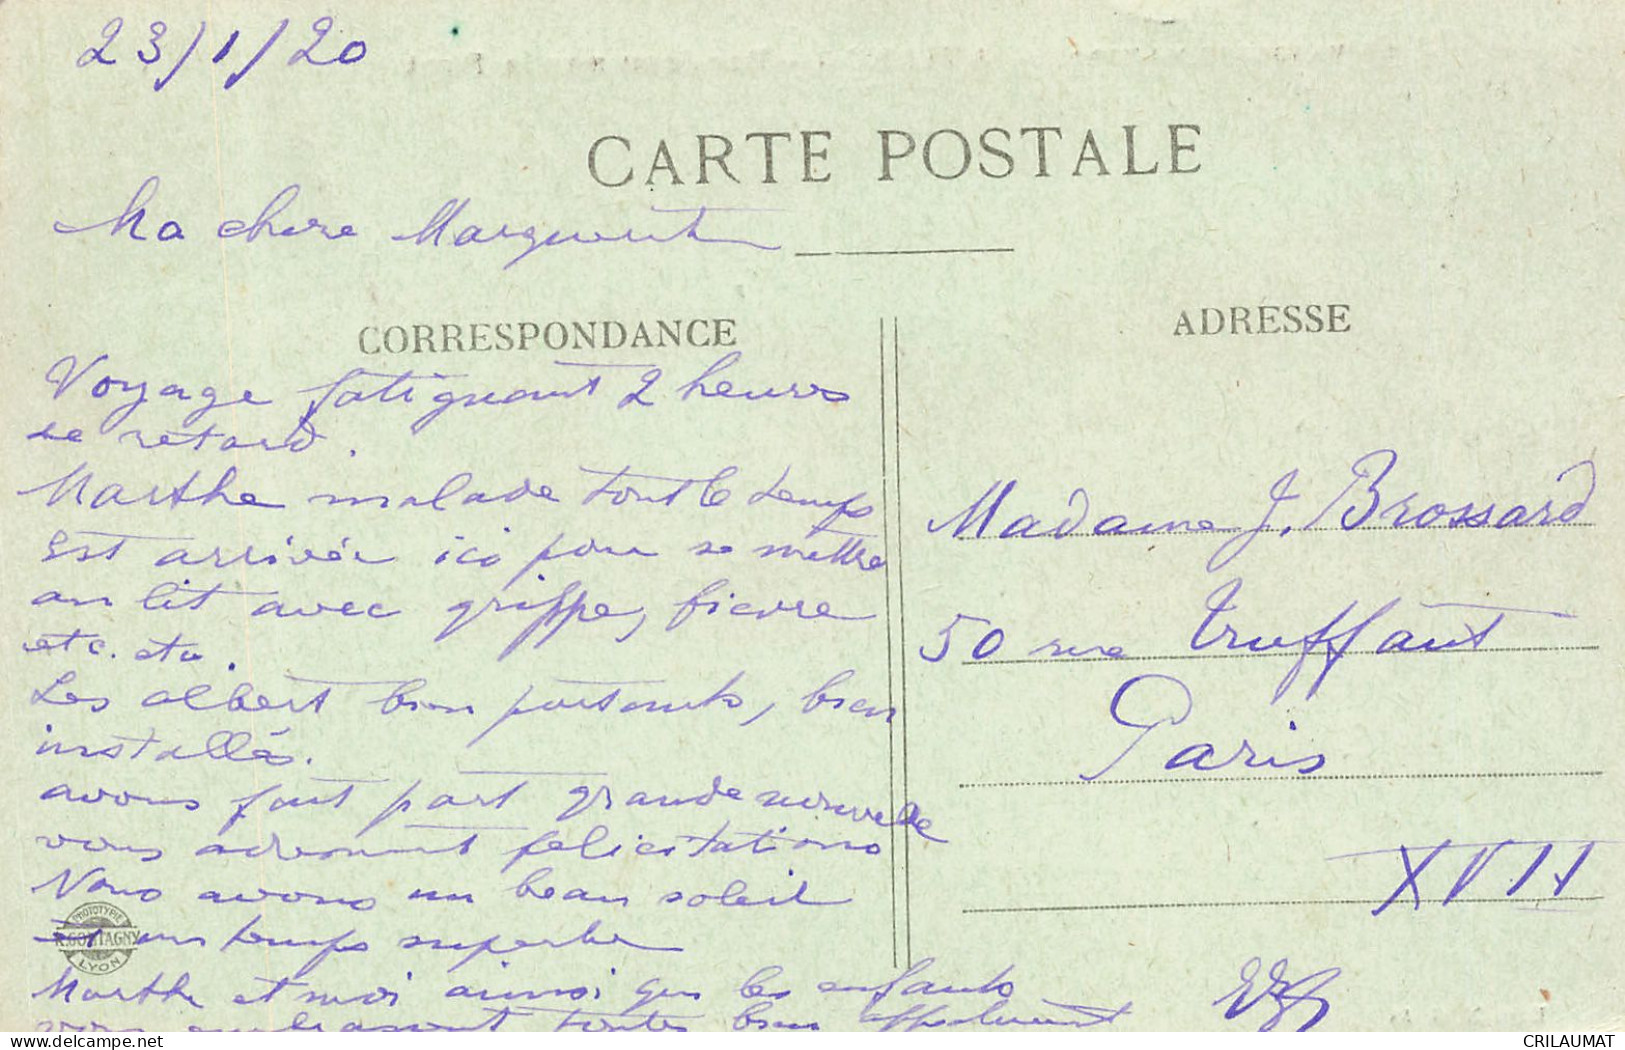 23/1/20
CARTE POSTALE
Ma chere Marguerite
CORRESPONDANCE
Voyage fatiguant 2 heures
de retard.
Marthe malade tout le temps
est arrivée ici pour se mettre
au lit avec grippe, fievre
etc. etc.
Les albert bien portants, bien
installés.
avons fait part grande nouvelle
vous adressent felicitations
Nous avons un beau soleil
et un temps superbe
Marthe et moi ainsi que les enfants
vous embrassont toutes bien
ADRESSE
Madame J. Brossard
50 rue Truffaut
Paris
XVII
PHOTOTYPIE
LYON
delcampe.net
CRILAUMAT